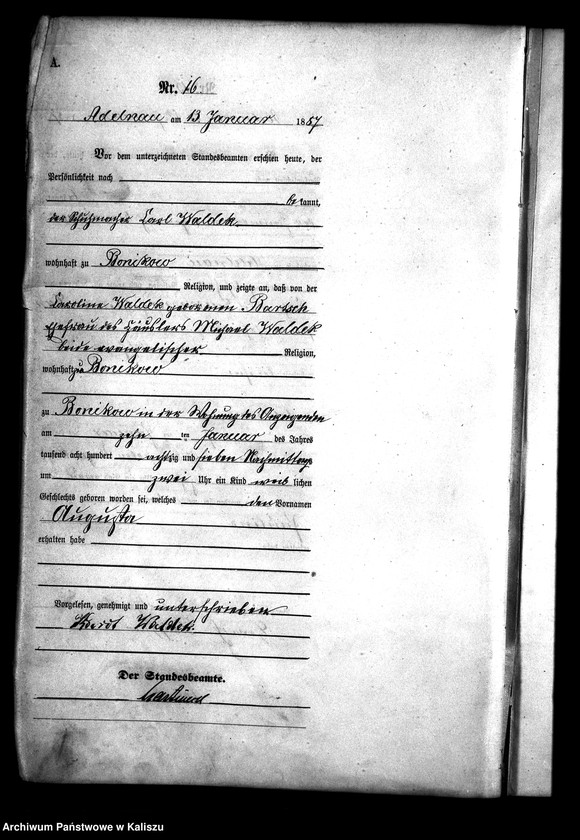 A.
Nr. 16
Adelnau am 13 Januar 1887
Vor dem unterzeichneten Standesbeamten erschien heute, der
Persönlichkeit nach
bekannt,
der Schuhmacher Carl Waldek,
wohnhaft zu Bonikowo
Religion, und zeigte an, daß von der
Caroline Waldek geborenen Bartsch
Ehefrau des Häuslers Michael Waldek
beide evangelischer Religion,
wohnhaft zu Bonikowo
zu Bonikowo in der Wohnung des
am zehn ten Januar des Jahres
tausend acht hundert achtzig und sieben Nachmittags
um zwei Uhr ein Kind weiblichen
Geschlechts geboren worden sei, welches den Vornamen
Augusta
erhalten habe
Vorgelesen, genehmigt und unterschrieben
Waldek.
Der Standesbeamte.
Archiwum Państwowe w Kaliszu